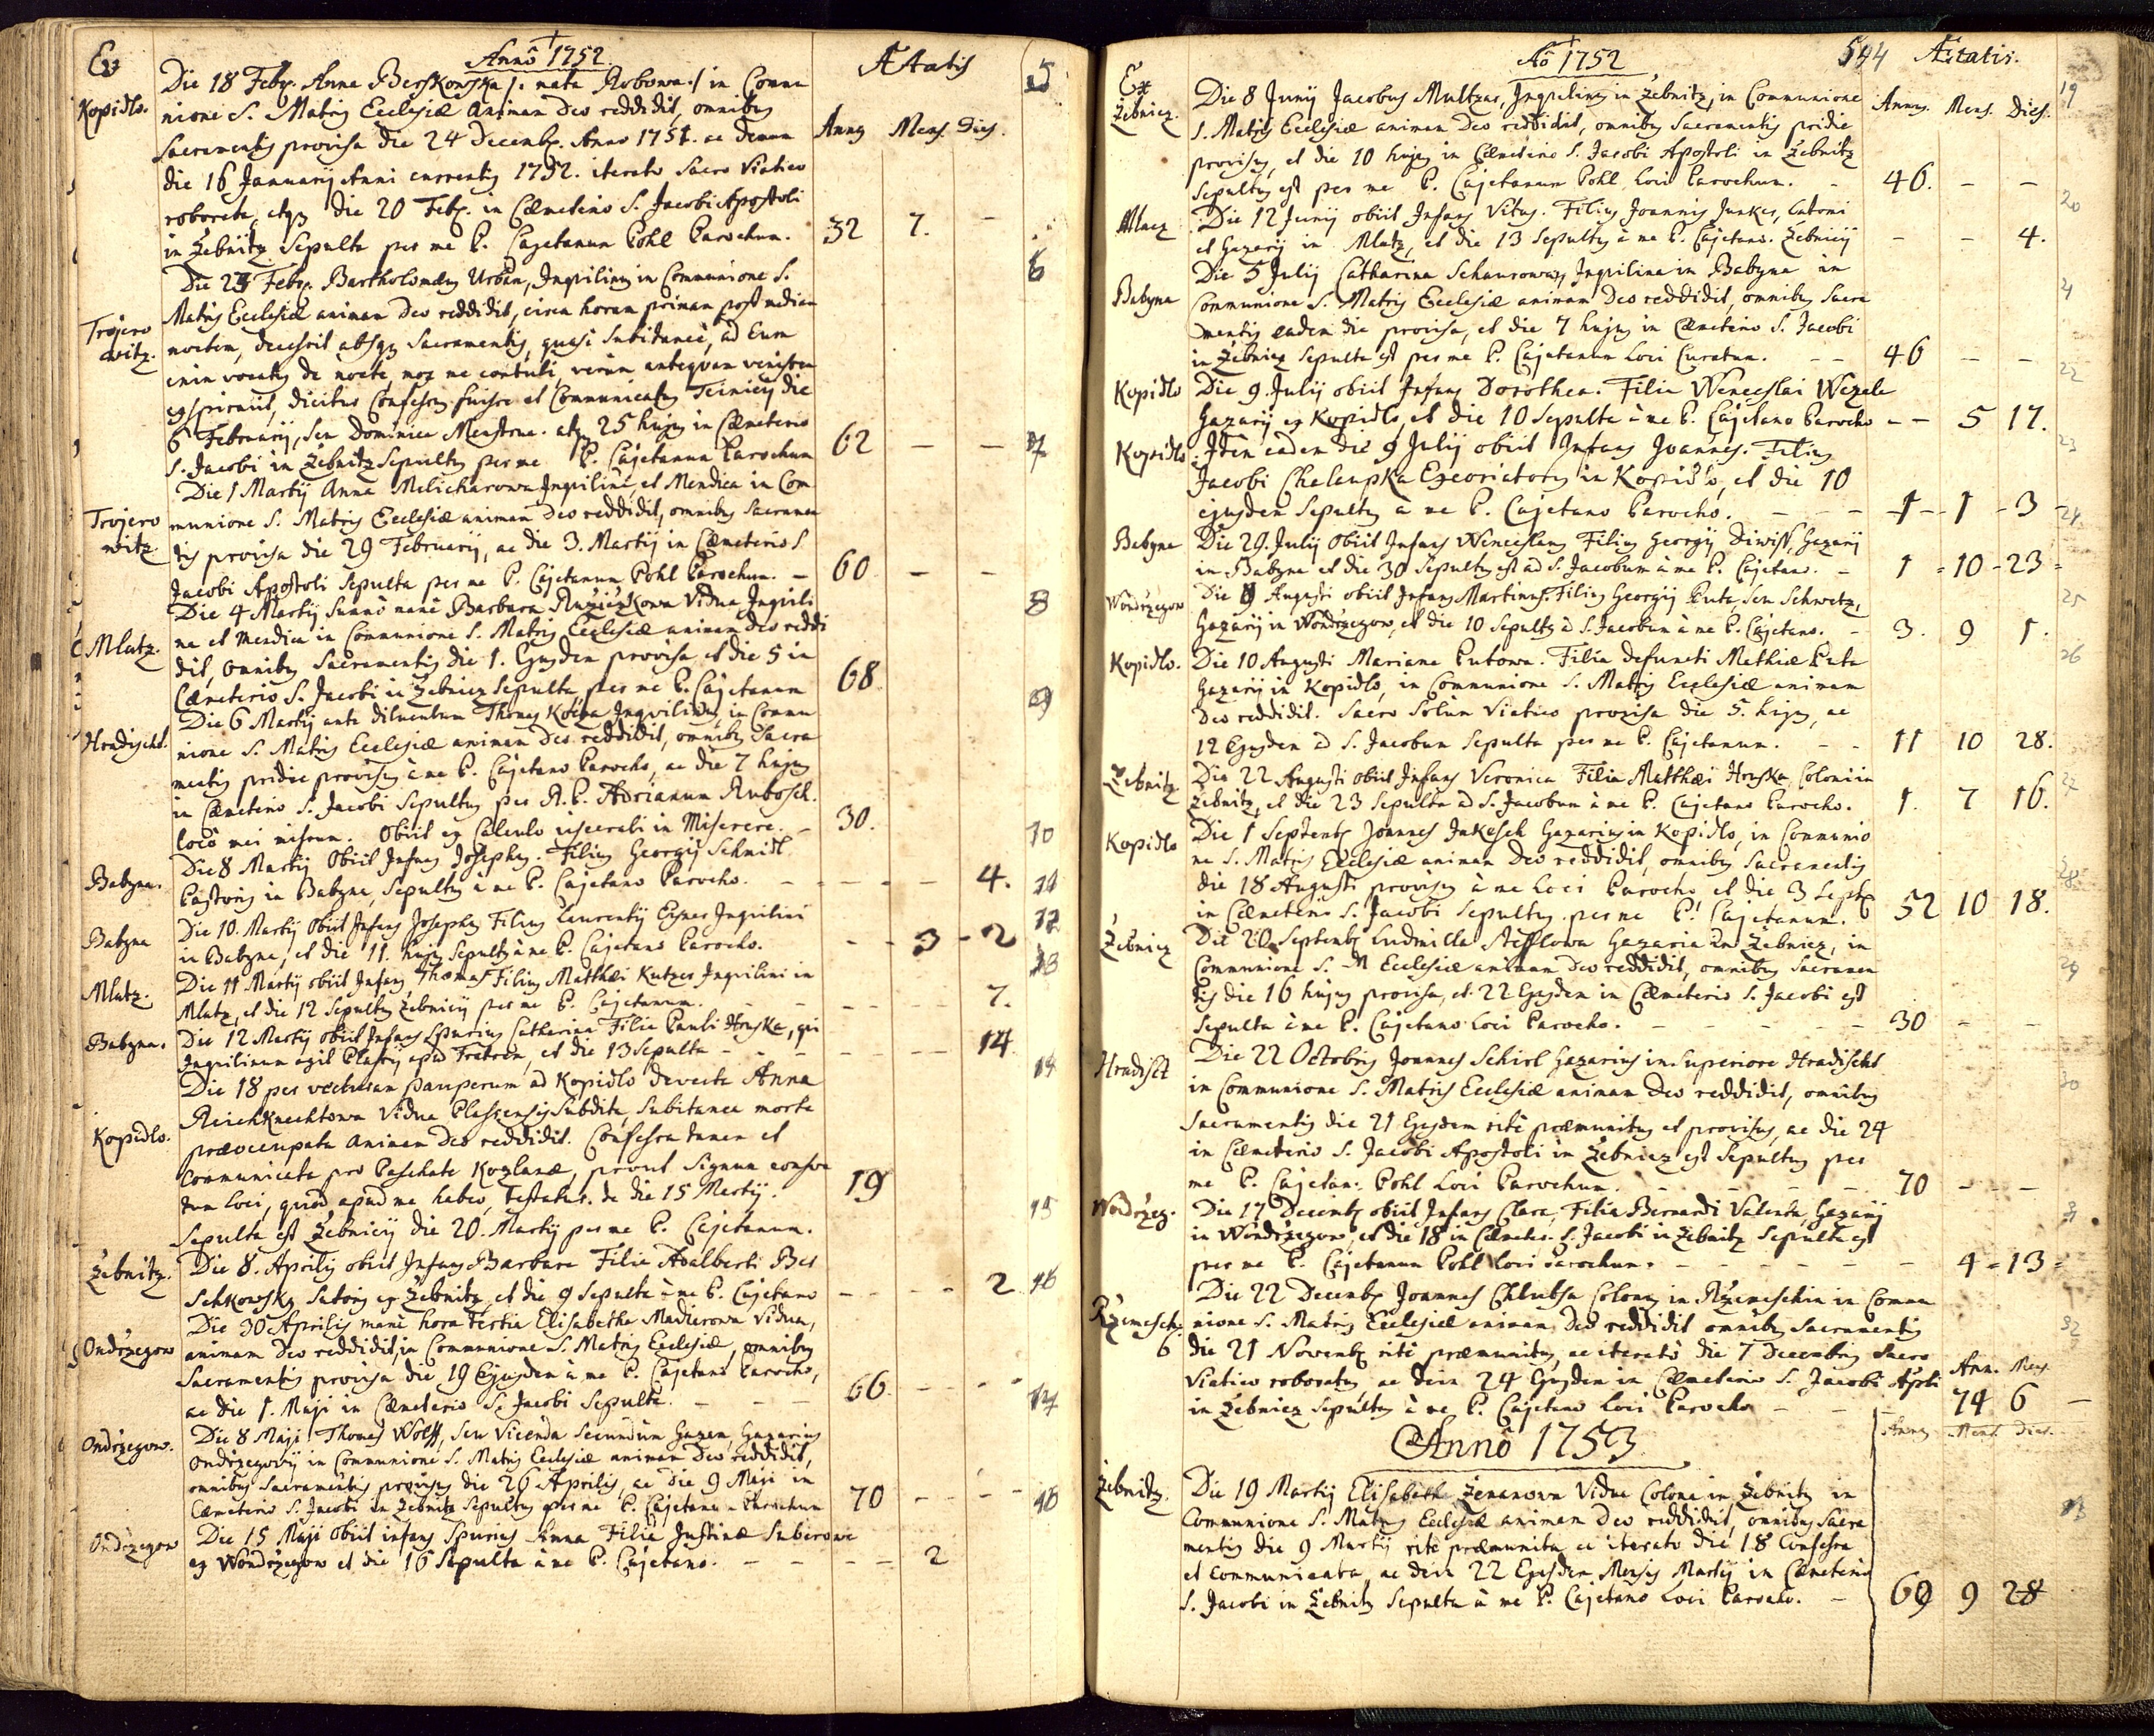 Ex
Anno 1752.
Ætatis
Kopidlo.
Die 18 Febr. Anna Berskowska /: nata Robowa :/ in Commu
nione S. Matris Ecclesiæ Animam Deo reddidit, omnibus
Sacramentis provisa die 24 Decembr. Anno 1751. ac denuo
Annus Mens. Dies.
die 16 Januarij Anni currentis 1752. iterato Sacro Viatico
roborata, atque die 20 Feb. in Cæmeterio S. Jacobi Apostoli
in Žebnitz Sepulta per me P. Cajetanum Pohl Parochum. 32 7. –
Trojero
witz.
Die 23 Febr. Bartholomæus Urban, Inquilinus in Communione S.
Matris Ecclesiæ animam Deo reddidit, circa horam primam post mediam
noctem, decessit absque Sacramentis, quasi Subitanee, ad Eum
enim vocatus de nocte, mox me contuli, verum antequam venissem
expiravit, dicitur Confessus fuisse et Communicatus Teinicij die
6 Februarij, seu Dominica Menstrua. atque 25 hujus in Cæmeterio
S. Jacobi in Žebnitz Sepultus per me P. Cajetanum Parochum 62 – –
Trojero
witz
Die 1 Martij Anna Melicharowa Inquilina, et Mendica in Com
munione S. Matris Ecclesiæ animam Deo reddidit, omnibus Sacramen
tis provisa die 29 Februarij, ac die 3. Martij in Cæmeterio S
Jacobi Apostoli Sepulta per me P. Cajetanum Pohl Parochum. – 60 – –
Mlatz.
Die 4 Martij Summo mane Barbara Ružiczkowa Vidua Inquili
na et Mendica in Communione S. Matris Ecclesiæ animam Deo reddi
dit, omnibus Sacramentis die 1. Ejusdem provisa et die 5 in
Cæmeterio S. Jacobi in Žebnicz Sepulta per me P. Cajetanum 68
Hradischt.
Die 6 Martij ante diluculum Thomas Inquilinus, in Commu
nione S. Matris Ecclesiæ animam Deo reddidit, omnibus Sacra
mentis pridie provisus à me P. Cajetano Parocho, ac die 7 hujus
in Cæmeterio S. Jacobi Sepultus per R.P. Adrianum Rubosch.
loco mei missum. Obiit ex Calculo in Miserere. – 30.
Babyna.
Die 8 Martij Obiit Infans Josephus. Filius Georgij Schmidt
Pastoris in Babyna, Sepultus à me P. Cajetano Parocho. – – – 4.
Babyna
Die 10. Martij obiit Infans Josephus Filius Laurentij Inquilini
in Babyna, et die 11. hujus Sepultus à me P. Cajetano Parocho. – – 3 – 2
Mlatz.
Die 11 Martij obiit Infans Thomas Filius Matthæi Kutzer Inquilini in
Mlatz, et die 12 Sepultus Žebnicij per me P. Cajetanum. – – – 7.
Babyna.
Die 12 Martij obiit Infans Spurius Catharina Filia Pauli Hruska, qui
Inquilinum agit Plassij apud Fratrem, et die 13 Sepulta – – – 14
Kopidlo.
Die 18 per vecturam pauperum ad Kopidlo devecta Anna
Reichknechtowa Vidua Plassensis Subdita, Subitanea morte
præoccupata Animam Deo reddidit. Confessa tamen et
Communicata pro Paschate Kozlanæ, prout Signum consve
tum loci, quod apud me habeo, testatur. de die 15 Martij. 19
Sepulta est Žebnicij die 20. Martij per me P. Cajetanum.
Žebnitz.
Die 8. Aprilis obiit Infans Barbara Filia Adalberti Ber
schkowsky Sutoris ex Žebnitz, et die 9 Sepulta à me P. Cajetano – – – 2
Ondrzegow
Die 30 Aprilis mane hora tertia Elisabetha Madierowa Vidua,
animam Deo reddidit, in Communione S. Matris Ecclesiæ, omnibus
Sacramentis provisa die 19 Ejusdem à me P. Cajetano Parocho,
ac die 1. Maji in Cæmeterio S. Jacobi Sepulta. – – 66 – –
Ondrzegow.
Die 8 Maji Thomas Wolff, seu Vicenda secundum Gazam, Gazarius
Ondrzegovij in Communione S. Matris Ecclesiæ animam Deo reddidit,
omnibus Sacramentis provisus die 26 Aprilis, ac die 9 Maji in
Cæmeterio S. Jacobi in Žebnitz Sepultus per me P. Cajetanum Parochum 70 – –
Ondrzegow
Die 15 Maji obiit infans Spurius Anna Filia Justinæ Suberowa
ex Wondrzegow et die 16 Sepulta à me P. Cajetano. – – – 2
5
6
7
8
9
10
11
12
13
14
15
16
17
18
Ao 1752
544
Ætatis.
Ex
Žebnicz.
Die 8 Junij Jacobus Multzar, Inquilinus in Žebnitz, in Communione
Annus. Mens. Dies.
S. Matris Ecclesiæ animam Deo reddidit, omnibus Sacramentis pridie
provisus, et die 10 hujus in Cæmeterio S. Jacobi Apostoli in Žebnitz
Sepultus est per me P. Cajetanum Pohl Loci Parochum. – 46. – –
Mlacz
Die 12 Junij obiit Infans Vitus. Filius Joannis Junker, Latomi
et Gazarij in Mlatz, et die 13 Sepultus à me P. Cajetano. Žebnicij – – 4.
Babyna
Die 5 Julij Catharina Schaurowa, Inquilina in Babyna in
Communione S. Matris Ecclesiæ animam Deo reddidit, omnibus Sacra
mentis eadem die provisa, et die 7 hujus in Cæmeterio S. Jacobi
in Žebnicz Sepulta est per me P. Cajetanum Loci Curatum. – – 46 – –
Kopidlo
Die 9 Julij obiit Infans Dorothea. Filia Wenceslai Wezale
Gazarij ex Kopidlo, et die 10 Sepulta à me P. Cajetano Parocho – – 5 17.
Kopidlo.
Item eadem die 9 Julij obiit Infans Joannes. Filius
Jacobi Chalaupka Excoriatoris in Kopidlo, et die 10
ejusdem Sepultus à me P. Cajetano Parocho. – – – 1 – 1 – 3
Babyna
Die 29. Julij Obiit Infans Wenceslaus Filius Georgij Diwiss, Gazarij
in Babyna et die 30 Sepultus est ad S. Jacobum à me P. Cajetano. – 1 – 10 – 23
Wondrzegow
Die 9 Augusti obiit Infans Martinus. Filius Georgij Puta, seu Schwetz,
Gazarij in Wondrzegow, et die 10 Sepultus à S. Jacobum à me P. Cajetano. – 3. 9 1.
Kopidlo.
Die 10 Augusti Mariana Putowa. Filia defuncti Mathiæ Puta
Gazarij in Kopidlo, in Communione S. Matris Ecclesiæ animam
Deo reddidit. Sacro Solum Viatico provisa die 5. hujus, ac
12 Ejusdem ad S. Jacobum Sepulta per me P. Cajetanum. – – 11 10 28.
Žebnitz
Die 22 Augusti obiit Infans Veronica Filia Matthæi Hruska Coloni in
Žebnitz, et die 23 Sepulta ad S. Jacobum à me P. Cajetano Parocho. 1. 7 16.
Kopidlo
Die 1 Septemb. Joannes Jukesch Gazarius in Kopidlo, in Communio
ne S. Matris Ecclesiæ animam Deo reddidit, omnibus Sacramentis
die 18 Augusti provisus à me Loci Parocho et die 3 Septb.
in Cæmeterio S. Jacobi Sepultus per me P. Cajetanum. 52 10 18.
Žebnicz
Die 20 Septemb. Ludmilla Gazaria in Žebnicz, in
Communione S. M Ecclesiæ animam Deo reddidit, omnibus Sacramen
tis die 16 hujus provisa, et 22 Ejusdem in Cæmeterio S. Jacobi est
Sepulta à me P. Cajetano Loci Parocho. – – – 30 – –
Hradist
Die 22 Octobris Joannes Schirl Gazarius in Superiore Hradischt
in Communione S. Matris Ecclesiæ animam Deo reddidit, omnibus
Sacramentis die 21 Ejusdem rite præmunitus et provisus, ac die 24
in Cæmeterio S. Jacobi Apostoli in Žebnicz est Sepultus per
me P. Cajetan: Pohl Loci Parochum. – – – 70 – – –
Wondrzeg.
Die 17 Decemb. obiit Infans Clara, Filia Bernardi Valenta, Gazarij
in Wondrzegow, et die 18 in Cæmeter. S. Jacobi in Žebnitz Sepulta est
per me P. Cajetanum Pohl Loci Parochum. – – – 4 – 13
Rzemesch.
6
Die 22 Decemb. Joannes Chlubsa Colonus in Rzemeschin in Commu
nione S. Matris Ecclesiæ animam Deo reddidit omnibus Sacramentis
die 21 Novemb. rite præmunitus, ac iterato die 7 Decembris Sacro
Viatico roboratus ac dein 24 Ejusdem in Cæmeterio S. Jacobi Apsti
Ann. Mens.
in Žebnicz Sepultus à me P. Cajetano Loci Parocho – – 74 6 –
Anno 1753.
Annus Mens. Dies.
Žebnitz.
Die 19 Martij Elisabetha Zemanowa Vidua Colona in Žebnitz in
Communione S. Matris Ecclesiæ animam Deo reddidit, omnibus Sacra
mentis die 9 Martij rite præmunita ac iterato die 18 Confessa
et Communicata, ac dein 22 Ejusdem Mensis Martij in Cæmeterio
S. Jacobi in Žebnitz Sepulta à me P. Cajetano Loci Parocho. – 69 9 28
19
20
21
22
23
24
25
26
27
28
29
30
31
32